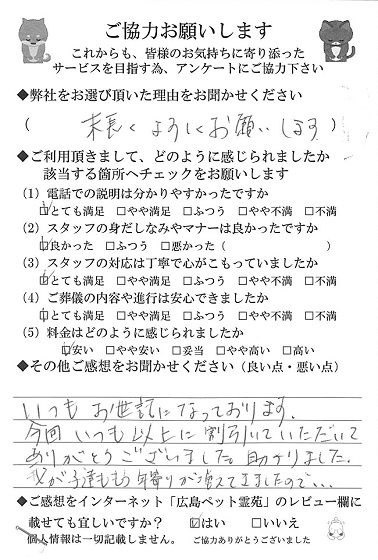 ご協力お願いします
これからも、皆様のお気持ちに寄り添った
サービスを目指す為、アンケートにご協力下さい
◆弊社をお選び頂いた理由をお聞かせください
( 末長くよろしくお願いします )
◆ご利用頂きまして、どのように感じられましたか
該当する箇所へチェックをお願いします
(1) 電話での説明は分かりやすかったですか
☑とても満足 □やや満足 □ふつう □やや不満 □不満
(2) スタッフの身だしなみやマナーは良かったですか
☑良かった □ふつう □悪かった ( )
(3) スタッフの対応は丁寧で心がこもっていましたか
☑とても満足 □やや満足 □ふつう □やや不満 □不満
(4) ご葬儀の内容や進行は安心できましたか
☑とても満足 □やや満足 □ふつう □やや不満 □不満
(5) 料金はどのように感じられましたか
☑安い □やや安い □妥当 □やや高い □高い
◆その他ご感想をお聞かせください (良い点・悪い点)
いつもお世話になっております。
今回いつも以上に割引いていただいて
ありがとうございました。助かりました。
我が子達ももう年寄りが増えてきましたので…
◆ご感想をインターネット「広島ペット霊苑」のレビュー欄に
載せても宜しいですか? ☑はい □いいえ
個人情報は一切記載しません。 ご協力ありがとうございました